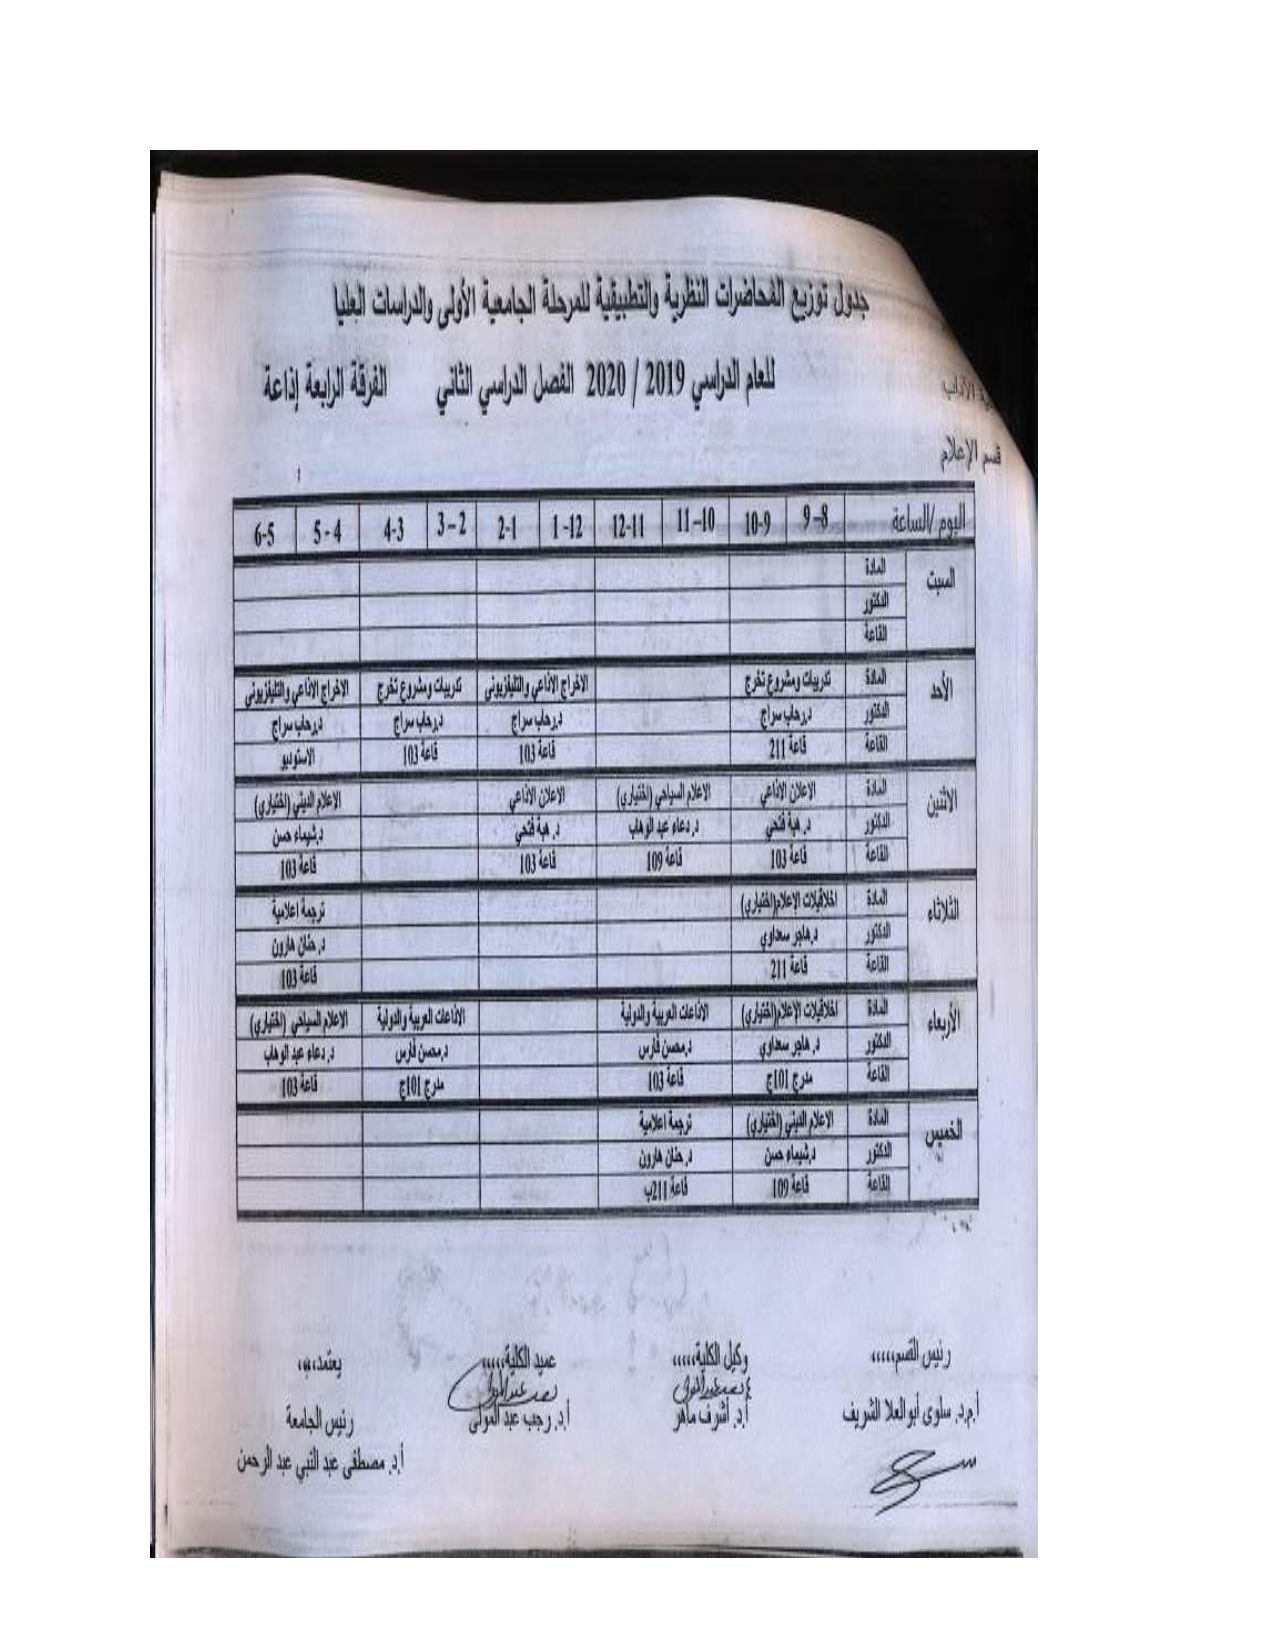 جدول توزيع المحاضرات النظرية والتطبيقية للمرحلة الجامعية الأولى والدراسات العليا
للعام الدراسي 2019 / 2020 الفصل الدراسي الثاني الفرقة الرابعة إذاعة
الآداب
قسم الإعلام
اليوم /الساعة 8–9 9-10 10–11 11-12 12-1 1-2 2–3 3-4 4-5 5-6
السبت المادة
الدكتور
القاعة
الأحد المادة تدريبات ومشروع تخرج الاخراج الاذاعي والتليفزيوني تدريبات ومشروع تخرج الاخراج الاذاعي والتليفزيوني
الدكتور د.رحاب سراج د.رحاب سراج د.رحاب سراج د.رحاب سراج
القاعة قاعة 211 قاعة 103 قاعة 103 الاستوديو
الاثنين المادة الاعلان الاذاعي الاعلام السياحي (اختياري) الاعلان الاذاعي الاعلام الديني (اختياري)
الدكتور د. هبة فتحي د. دعاء عبد الوهاب د. هبة فتحي د.شيماء حسن
القاعة قاعة 103 قاعة 109 قاعة 103 قاعة 103
الثلاثاء المادة اخلاقيات الإعلام(اختياري) ترجمة اعلامية
الدكتور د.هاجر سعداوي د. حنان هارون
القاعة قاعة 211 قاعة 103
الأربعاء المادة اخلاقيات الإعلام(اختياري) الاذاعات العربية والدولية الاذاعات العربية والدولية الاعلام السياحي (اختياري)
الدكتور د. هاجر سعداوي د.محسن فارس د.محسن فارس د. دعاء عبد الوهاب
القاعة مدرج 101ج قاعة 103 مدرج 101ج قاعة 103
الخميس المادة الاعلام الديني (اختياري) ترجمة اعلامية
الدكتور د.شيماء حسن د. حنان هارون
القاعة قاعة 109 قاعة 211ب
رئيس القسم،،،،، وكيل الكلية،،،،، عميد الكلية،،،،، يعتمد،،،،
أ.م.د. سلوى أبو العلا الشريف أ.د. أشرف ماهر أ.د. رجب عبد المولى رئيس الجامعة
أ.د. مصطفى عبد النبي عبد الرحمن